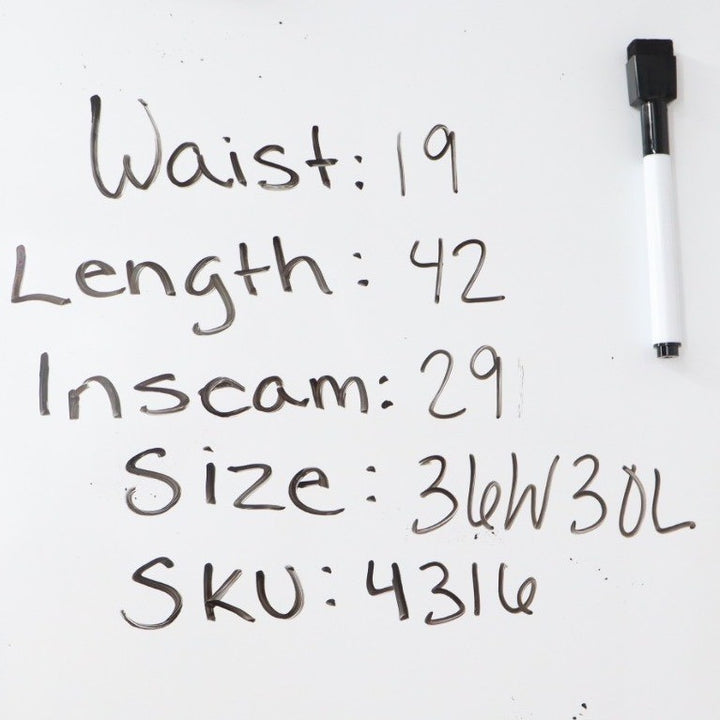 Waist: 19
Length: 42
Inseam: 29
Size: 36W30L
SKU: 4316